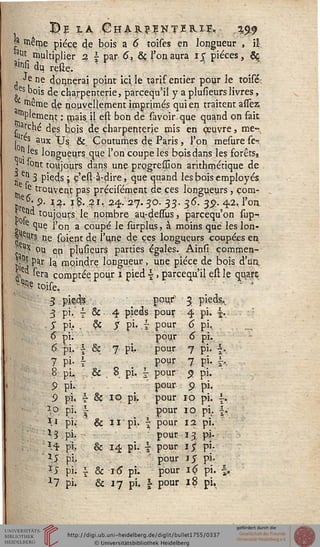 DE LA CHARPENTERIE. 299
la même piéce de bois a 6 toises en longueur , il
faut multiplier 2 ½ par 6, & l'on aura 15 piéces, &
ainsi du reste.
Je ne donnerai point ici le tarif entier pour le toisé
des bois de charpenterie, parcequ'il y a plusieurs livres,
& même de nouvellement imprimés qui en traitent assez
amplement : mais il est bon de savoir que quand on fait
marché des bois de charpenterie mis en œuvre, me-
surés aux Us & Coutumes de Paris, l'on mesure se-
lon les longueurs que l'on coupe les bois dans les forêts,
qui sont toujours dans une progression arithmétique de
3 en 3 pieds ; c'est-à-dire, que quand les bois employés
ne se trouvent pas précisément de ces longueurs , com-
me 6. 9. 12. 18. 21. 24. 27. 30. 33. 36. 39. 42. l'on
prend toujours le nombre au-dessus , parcequ'on sup-
pose que l'on a coupé le surplus, à moins que les lon-
gueurs ne soient de l'une de ces longueurs coupées en
deux ou en plusieurs parties égales. Ainsi commen-
çant par la moindre longueur, une piéce de bois d'un
pied sera comptée pour 1 pied ½, parcequ'il est le quart
d'une toise.
3 pieds pour 3 pieds.
3 pi. ½ & 4 pieds pour 4 pi. ½.
5 pi. & 5 pi. ½ pour 6 pi.
6 pi. pour 6 pi.
6 pi. ½ & 7 pi. pour 7 pi. ½.
7 pi. ½ pour 7 pi. ½.
8 pi. & 8 pi. ½ pour 9 pi.
9 pi. pour 9 pi.
9 pi. ½ & 10 pi. pour 10 pi. ½.
10 pi. ½ pour 10 pi. ½.
11 pi. & 11 pi. ½ pour 12 pi.
13 pi. pour 13 pi.
14 pi. & 14 pi. ½ pour 15 pi.
15 pi. pour 15 pi.
15 pi. ½ & 16 pi. pour 16 pi. ½.
17 pi. & 17 pi. ½ pour 18 pi.
UNIVERSITÄTS-
BIBLIOTHEK
HEIDELBERG
http://digi.ub.uni-heidelberg.de/diglit/bullet1755/0337
© Universitätsbibliothek Heidelberg
gefördert durch die
Gesellschaft der Freunde
Universität Heidelberg e.V.